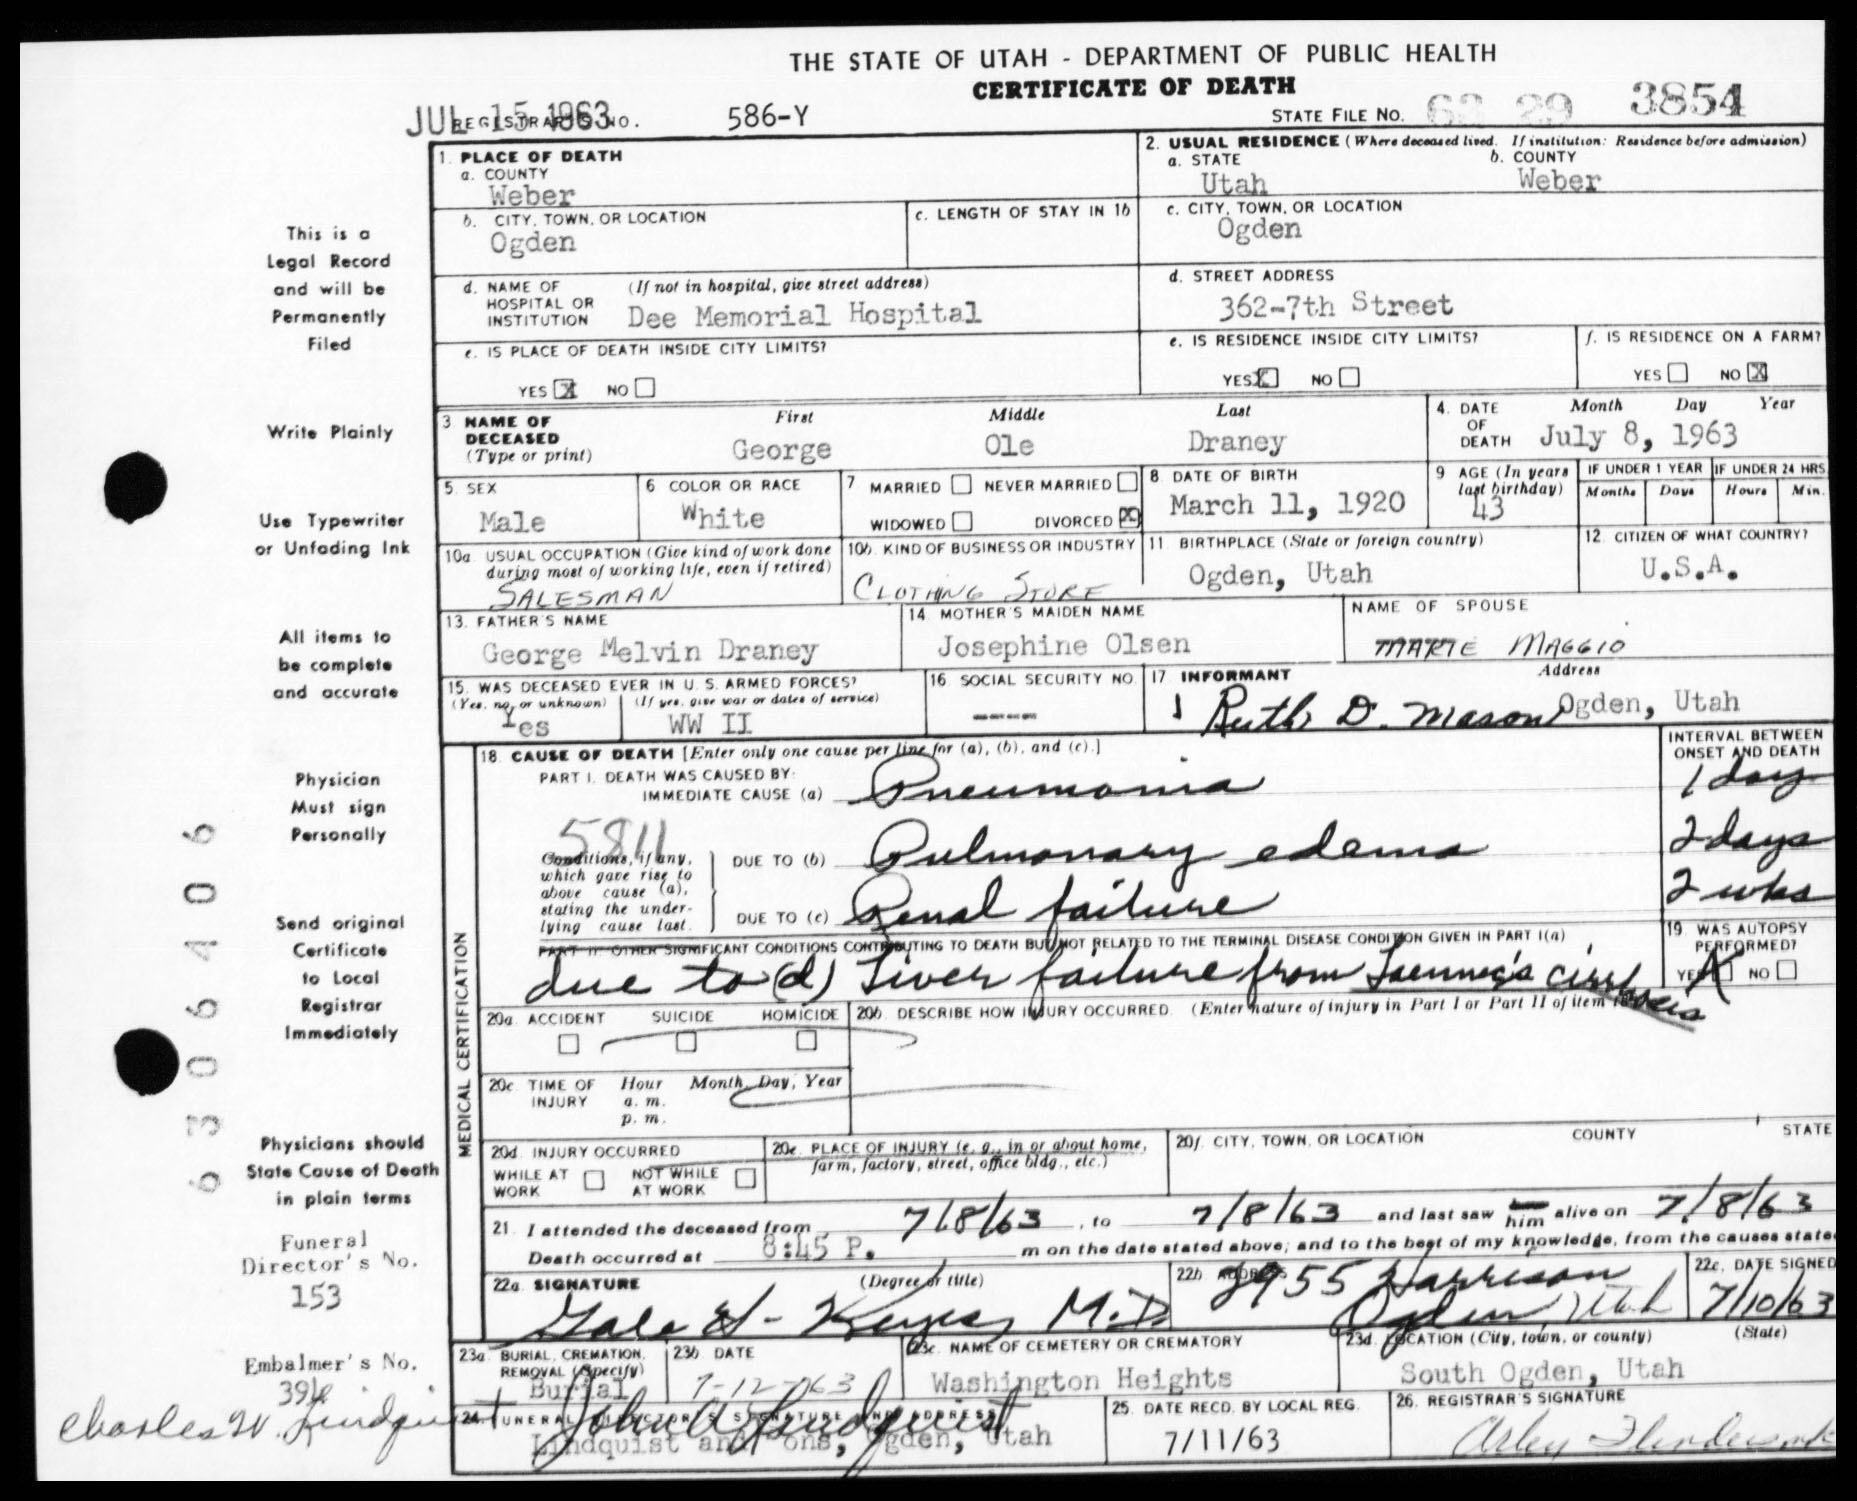 THE STATE OF UTAH - DEPARTMENT OF PUBLIC HEALTH
CERTIFICATE OF DEATH
JUL 15 1963
REGISTRAR'S NO. 586-Y
STATE FILE NO. 63 29 3854
1. PLACE OF DEATH
a. COUNTY
Weber
2. USUAL RESIDENCE (Where deceased lived. If institution: Residence before admission)
a. STATE b. COUNTY
Utah Weber
b. CITY, TOWN, OR LOCATION
Ogden
c. LENGTH OF STAY IN 1b
c. CITY, TOWN, OR LOCATION
Ogden
d. NAME OF HOSPITAL OR INSTITUTION (If not in hospital, give street address)
Dee Memorial Hospital
d. STREET ADDRESS
362-7th Street
e. IS PLACE OF DEATH INSIDE CITY LIMITS?
YES X NO
e. IS RESIDENCE INSIDE CITY LIMITS?
YES X NO
f. IS RESIDENCE ON A FARM?
YES NO X
3 NAME OF DECEASED (Type or print)
First Middle Last
George Ole Draney
4. DATE OF DEATH
Month Day Year
July 8, 1963
5. SEX
Male
6 COLOR OR RACE
White
7 MARRIED NEVER MARRIED
WIDOWED DIVORCED X
8. DATE OF BIRTH
March 11, 1920
9 AGE (In years last birthday)
43
IF UNDER 1 YEAR IF UNDER 24 HRS.
Months Days Hours Min.
10a USUAL OCCUPATION (Give kind of work done during most of working life, even if retired)
SALESMAN
10b. KIND OF BUSINESS OR INDUSTRY
CLOTHING STORE
11. BIRTHPLACE (State or foreign country)
Ogden, Utah
12. CITIZEN OF WHAT COUNTRY?
U.S.A.
13. FATHER'S NAME
George Melvin Draney
14 MOTHER'S MAIDEN NAME
Josephine Olsen
NAME OF SPOUSE
MARIE MAGGIO
15. WAS DECEASED EVER IN U. S. ARMED FORCES?
(Yes, no, or unknown) (If yes, give war or dates of service)
Yes WW II
16 SOCIAL SECURITY NO.
----
17. INFORMANT Address
Ruth D. Mason Ogden, Utah
MEDICAL CERTIFICATION
18. CAUSE OF DEATH [Enter only one cause per line for (a), (b), and (c).]
INTERVAL BETWEEN ONSET AND DEATH
PART I. DEATH WAS CAUSED BY:
IMMEDIATE CAUSE (a) Pneumonia 1 day
5811
Conditions, if any, which gave rise to above cause (a), stating the underlying cause last.
DUE TO (b) Pulmonary edema 2 days
DUE TO (c) Renal failure 2 wks
PART II OTHER SIGNIFICANT CONDITIONS CONTRIBUTING TO DEATH BUT NOT RELATED TO THE TERMINAL DISEASE CONDITION GIVEN IN PART I(a)
due to (d) Liver failure from Laennec's cirrhosis
19 WAS AUTOPSY PERFORMED?
YES X NO
20a. ACCIDENT SUICIDE HOMICIDE
20b. DESCRIBE HOW INJURY OCCURRED. (Enter nature of injury in Part I or Part II of item
20c TIME OF INJURY Hour a. m. p. m. Month, Day, Year
20d. INJURY OCCURRED
WHILE AT WORK NOT WHILE AT WORK
20e. PLACE OF INJURY (e. g., in or about home, farm, factory, street, office bldg., etc.)
20f. CITY, TOWN, OR LOCATION COUNTY STATE
21. I attended the deceased from 7/8/63, to 7/8/63 and last saw him alive on 7/8/63
Death occurred at 8:45 P. m on the date stated above; and to the best of my knowledge, from the causes state
22a. SIGNATURE (Degree or title)
Gale H. Keyes, M.D.
22b ADDRESS
2955 Harrison
Ogden Utah
22c. DATE SIGNED
7/10/63
23a. BURIAL, CREMATION, REMOVAL (Specify)
Burial
23b. DATE
7-12-63
23c. NAME OF CEMETERY OR CREMATORY
Washington Heights
23d. LOCATION (City, town, or county) (State)
South Ogden, Utah
24. FUNERAL DIRECTOR'S SIGNATURE AND ADDRESS
John A Lindquist
Lindquist and Sons, Ogden, Utah
25. DATE RECD. BY LOCAL REG.
7/11/63
26. REGISTRAR'S SIGNATURE
This is a
Legal Record
and will be
Permanently
Filed
Write Plainly
Use Typewriter
or Unfading Ink
All items to
be complete
and accurate
Physician
Must sign
Personally
Send original
Certificate
to Local
Registrar
Immediately
Physicians should
State Cause of Death
in plain terms
Funeral
Director's No.
153
Embalmer's No.
394
Charles W. Lindquist
6306406